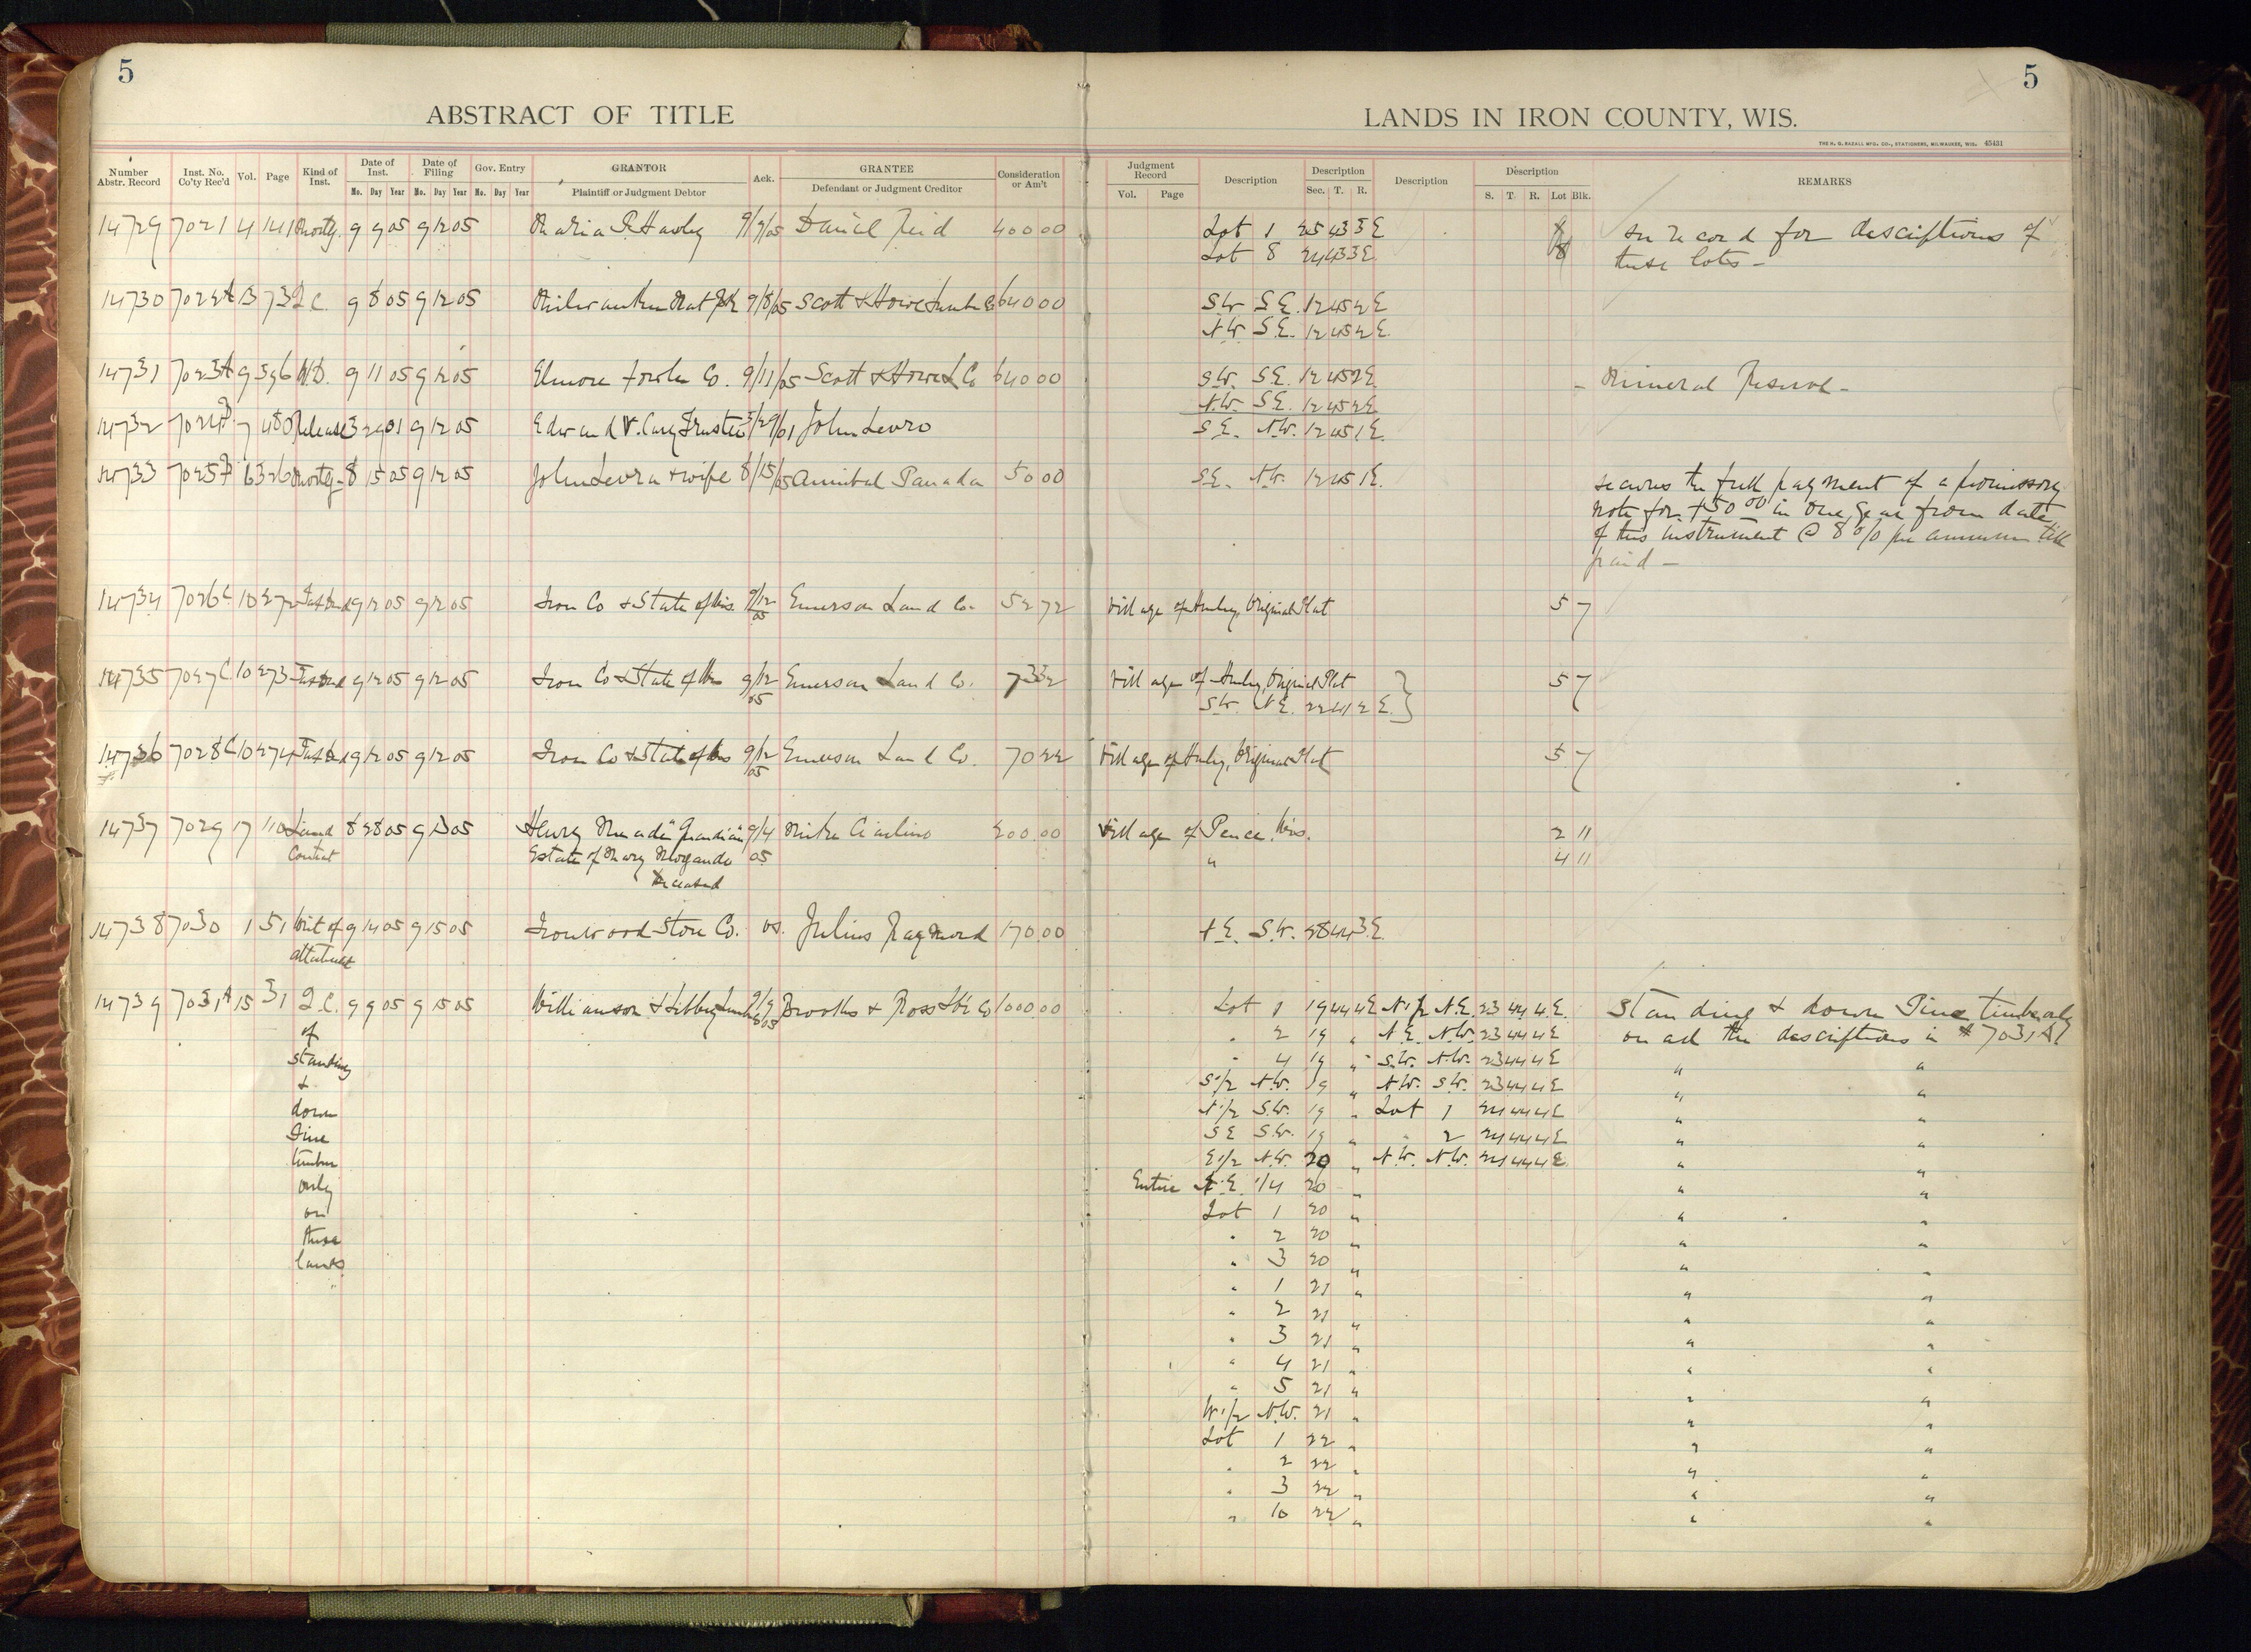 5
ABSTRACT OF TITLE
Number Abstr. Record Inst. No. Co'ty Rec'd Vol. Page Kind of Inst. Date of Inst. Date of Filing Gov. Entry GRANTOR Ack. GRANTEE Consideration or Am't
Mo. Day Year Mo. Day Year Mo. Day Year Plaintiff or Judgment Debtor Defendant or Judgment Creditor
14729 7021 4 141 Mortg. 9 9 05 9 12 05 Maria R. Hawley 9/9/05 Daniel Reid 400 00
14730 7022A 13 73 Q.C. 9 8 05 9 12 05 Milwaukee Nat 9/8/05 Scott & Howe Lumb Co 640 00
14731 7023A 9 596 W.D. 9 11 05 9 12 05 Elmore Fowler Co. 9/11/05 Scott & Howe L Co 640 00
14732 7024 7 480 Release 3 29 01 9 12 05 Edward V. Cary Trustee 3/29/01 John Levro
14733 7025 6 326 Mortg- 8 15 05 9 12 05 John Levra & wife 8/15/05 Annibal Panada 50 00
14734 7026C 10 272 Tax Deed 9 12 05 9 12 05 Iron Co & State of Wis. 9/12 05 Emerson Land Co. 52 72
14735 7027C 10 273 Tax Deed 9 12 05 9 12 05 Iron Co & State of Wis 9/12 05 Emerson Land Co. 73 32
14736 7028C 10 274 Tax Deed 9 12 05 9 12 05 Iron Co & State of Wis 9/12 05 Emerson Land Co. 70 22
14737 7029 17 110 Land 8 28 05 9 13 05 Henry "Guardian" 9/4 Mike Ciarlino 200.00
Contract Estate of Mary 05
Deceased
14738 7030 1 51 Writ of 9 14 05 9 15 05 Ironwood Store Co. vs. Julius Raymond 170.00
attachment
14739 7031A 15 31 Q.C. 9 9 05 9 15 05 Williamson & Libbey Lumb 9/9/05 Brooks & Ross Lbr Co 1000.00
of
standing
&
down
Pine
timber
only
on
these
lands.
5
LANDS IN IRON COUNTY, WIS.
THE H. G. RAZALL MFG. CO., STATIONERS, MILWAUKEE, WIS. 45431
Judgment Record Description Description Description Description REMARKS
Vol. Page Sec. T. R. S. T. R. Lot Blk.
Lot 1 25 43 3E see record for descriptions of
Lot 8 24 43 3E. 8 these lots -
S.W. S.E. 12 45 2E
N.W. S.E. 12 45 2E.
S.W. S.E. 12 45 2E. - Mineral Reserve -
N.W. S.E. 12 45 2E
S.E. N.W. 12 45 1E.
S.E. N.W. 12 45 1E. secures the full payment of a promissory
note for $50 00 in one year from date
of this instrument @ 8 % per annum till
paid -
Village of Hurley, Original Plat 5 7
Village of Hurley, Original Plat } 5 7
S.W. N.E. 22 41 2E.
Village of Hurley, Original Plat 5 7
Village of Pence Wis. 2 11
" 4 11
N.E. S.W. 28 44 3E.
Lot 1 19 44 4E N 1/2 N.E. 23 44 4E. Standing & down Pine timber only
" 2 19 " N.E. N.W. 23 44 4E on all the descriptions in # 7031A.
" 4 19 " S.W. N.W. 23 44 4E " "
S 1/2 N.W. 19 " N.W. S.W. 23 44 4E " "
N 1/2 S.W. 19 " Lot 1 24 44 4E " "
SE S.W. 19 " " 2 24 44 4E " "
E 1/2 N.W. 20 " N.W. N.W. 24 44 4E " "
Entire N.E. 1/4 20 " " "
Lot 1 20 " " "
" 2 20 " " "
" 3 20 " " "
" 1 21 " " "
" 2 21 " " "
" 3 21 " " "
" 4 21 " " "
" 5 21 " " "
W 1/2 N.W. 21 " " "
Lot 1 22 " " "
" 2 22 " " "
" 3 22 " " "
" 10 22 " " "